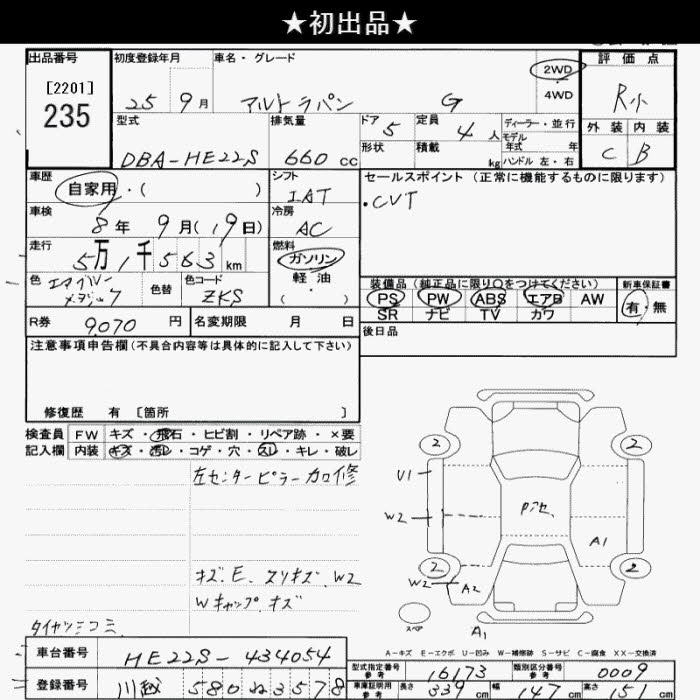 ★初出品★
出品番号
[2201]
235
初度登録年月
25 9月
車名・グレード
アルトラパン G
2WD
4WD
評価点
R小
外装 内装
C B
型式
DBA-HE22S
排気量
660 cc
ドア 5
形状
定員 4人
積載 kg
ディーラー・並行
モデル
年式 年
ハンドル 左・右
車歴
自家用・( )
シフト
IAT
セールスポイント (正常に機能するものに限ります)
・CVT
車検
8年 9月(19日)
冷房
AC
走行
5万1千563km
燃料
ガソリン
軽油
・( )
色
色替
色コード
ZKS
装備品(純正品に限り○をつけてください)
PS PW ABS エアB AW
SR ナビ TV カワ
新車保証書
有・無
R券 9,070 円
名変期限 月 日
後日品
注意事項申告欄(不具合内容等は具体的に記入して下さい)
修復歴 有 [箇所 ]
検査員
記入欄
FW キズ・飛石・ヒビ割・リペア跡・×要
内装 キズ・汚レ・コゲ・穴・スレ・キレ・破レ
左センターピラーカロ修
キズ.E.スリキズ.W2
Wキャップキズ
タイヤツミコミ
2 2
U1
W2
Pアセ
A1
2 2
W2 A2
スペア
A1
A-キズ E-エクボ U-凹み W-補修跡 S-サビ C-腐食 XX-交換済
車台番号
HE22S-434054
登録番号
川越 580 ね 3578
型式指定番号
参考
16173
類別区分番号
参考
0009
車庫証明用
参考
長さ 339 cm 幅 147 cm 高さ 151 cm